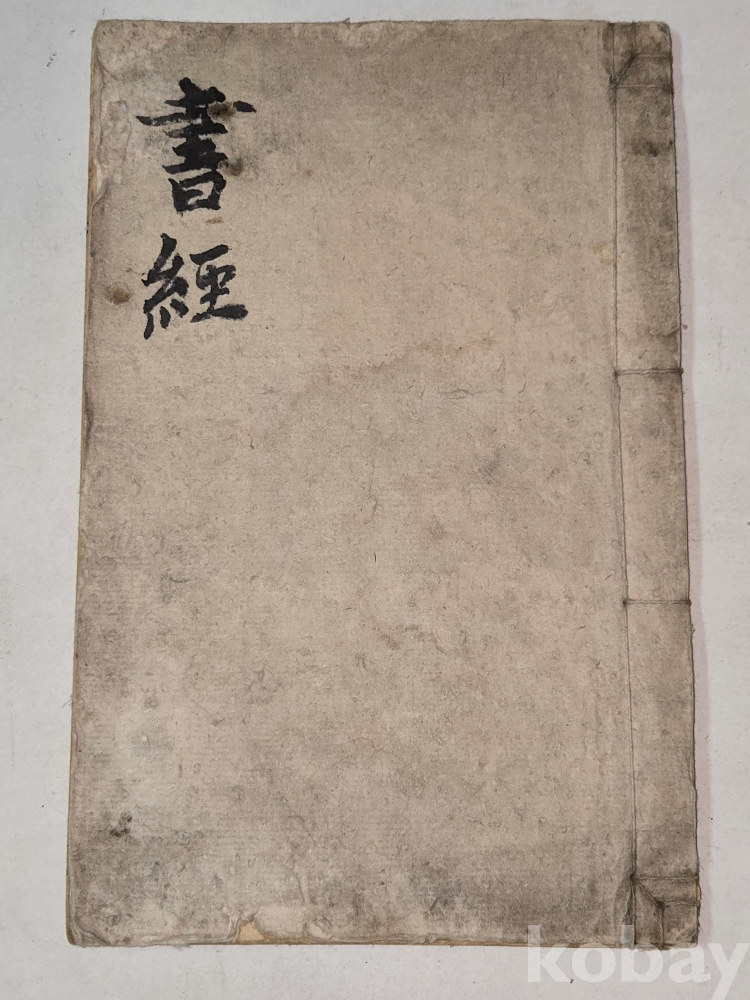 書經
kobay